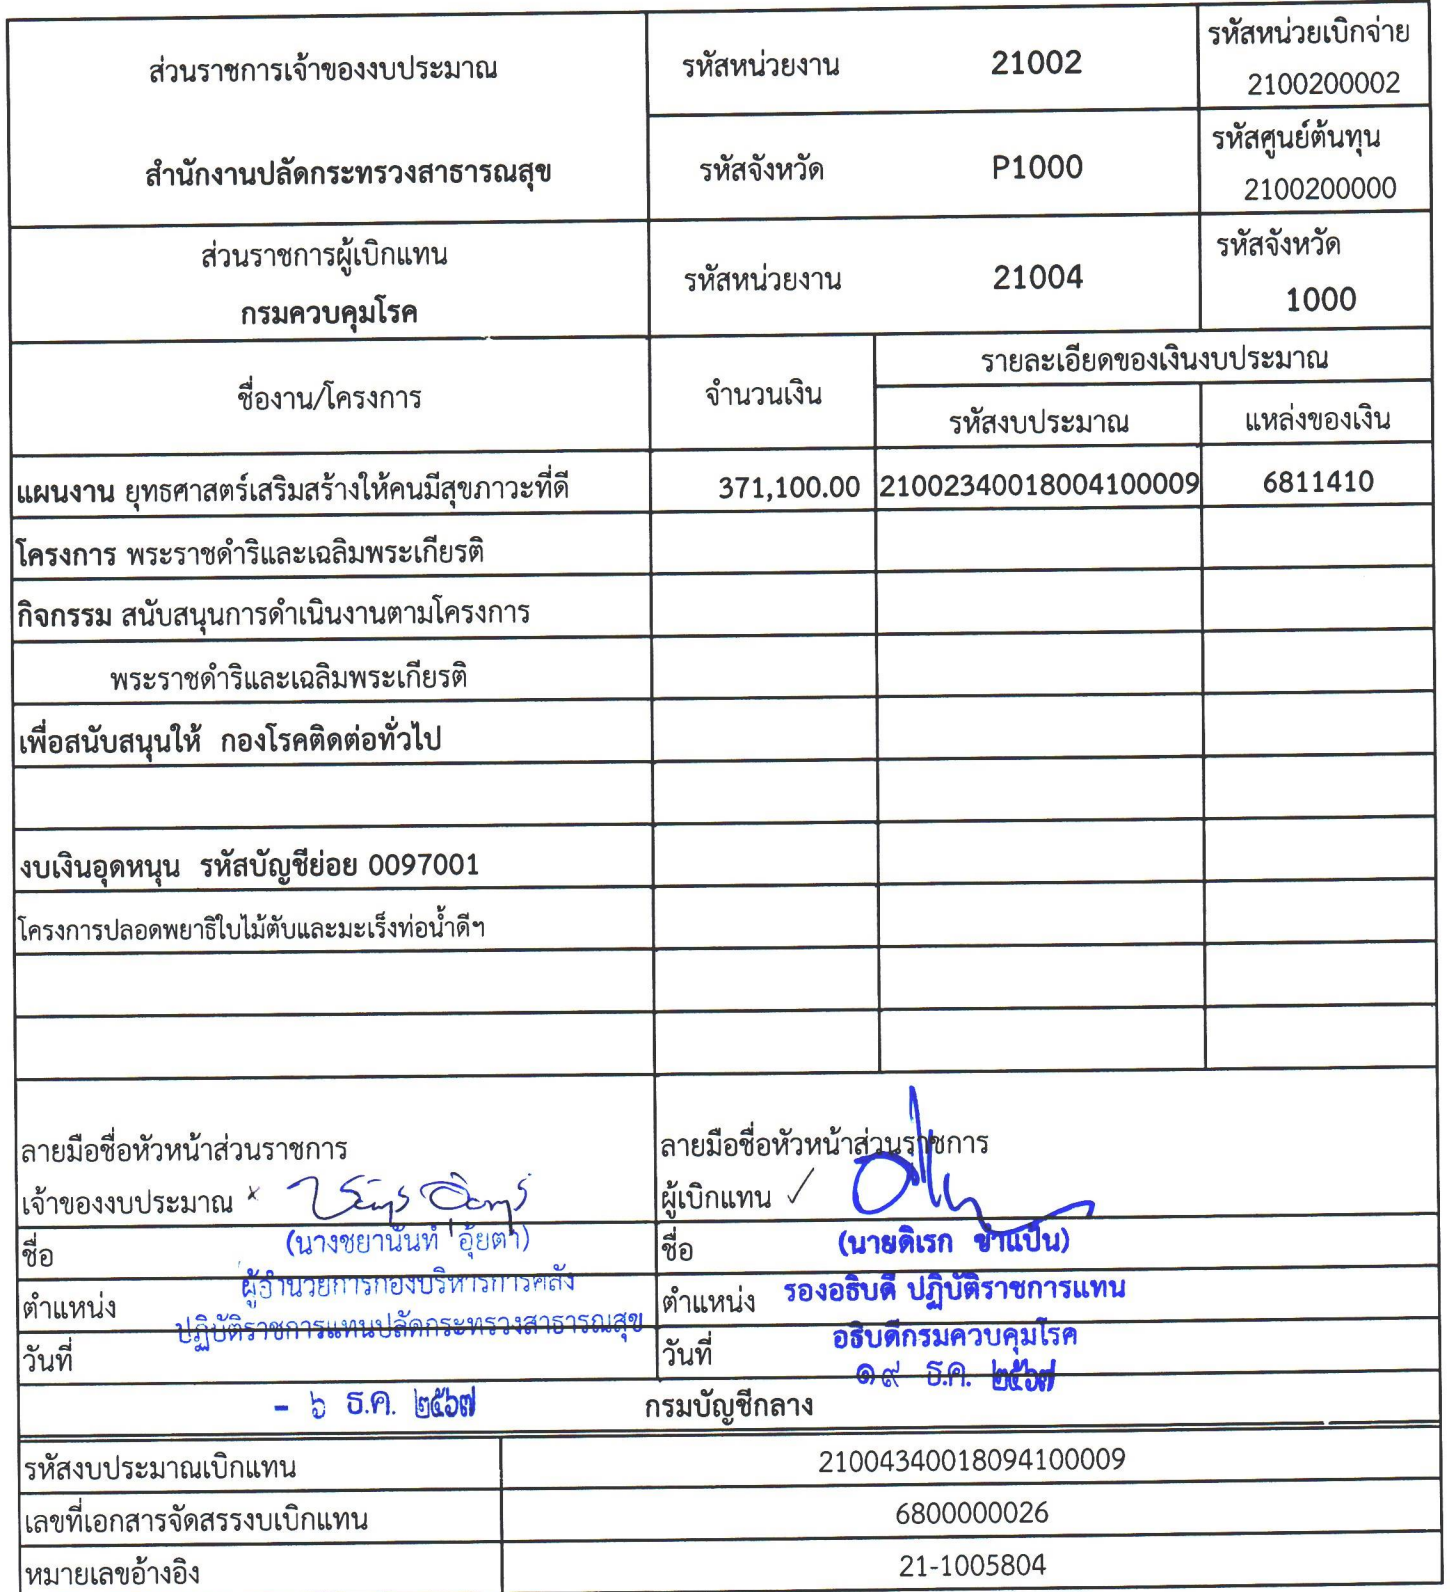 ส่วนราชการเจ้าของงบประมาณ
สำนักงานปลัดกระทรวงสาธารณสุข
รหัสหน่วยงาน 21002
รหัสหน่วยเบิกจ่าย
2100200002
รหัสจังหวัด P1000
รหัสศูนย์ต้นทุน
2100200000
ส่วนราชการผู้เบิกแทน
กรมควบคุมโรค
รหัสหน่วยงาน 21004
รหัสจังหวัด
1000
ชื่องาน/โครงการ
จำนวนเงิน
รายละเอียดของเงินงบประมาณ
รหัสงบประมาณ แหล่งของเงิน
แผนงาน ยุทธศาสตร์เสริมสร้างให้คนมีสุขภาวะที่ดี 371,100.00 21002340018004100009 6811410
โครงการ พระราชดำริและเฉลิมพระเกียรติ
กิจกรรม สนับสนุนการดำเนินงานตามโครงการ
พระราชดำริและเฉลิมพระเกียรติ
เพื่อสนับสนุนให้ กองโรคติดต่อทั่วไป
งบเงินอุดหนุน รหัสบัญชีย่อย 0097001
โครงการปลอดพยาธิใบไม้ตับและมะเร็งท่อน้ำดีฯ
ลายมือชื่อหัวหน้าส่วนราชการ
เจ้าของงบประมาณ
ชื่อ (นางชยานันท์ อุ้ยตา)
ผู้อำนวยการกองบริหารการคลัง
ตำแหน่ง
ปฏิบัติราชการแทนปลัดกระทรวงสาธารณสุข
วันที่
- ๖ ธ.ค. ๒๕๖๗
ลายมือชื่อหัวหน้าส่วนราชการ
ผู้เบิกแทน
ชื่อ (นายดิเรก ขำแป้น)
ตำแหน่ง รองอธิบดี ปฏิบัติราชการแทน
อธิบดีกรมควบคุมโรค
วันที่
๑๙ ธ.ค. ๒๕๖๗
กรมบัญชีกลาง
รหัสงบประมาณเบิกแทน 21004340018094100009
เลขที่เอกสารจัดสรรงบเบิกแทน 6800000026
หมายเลขอ้างอิง 21-1005804